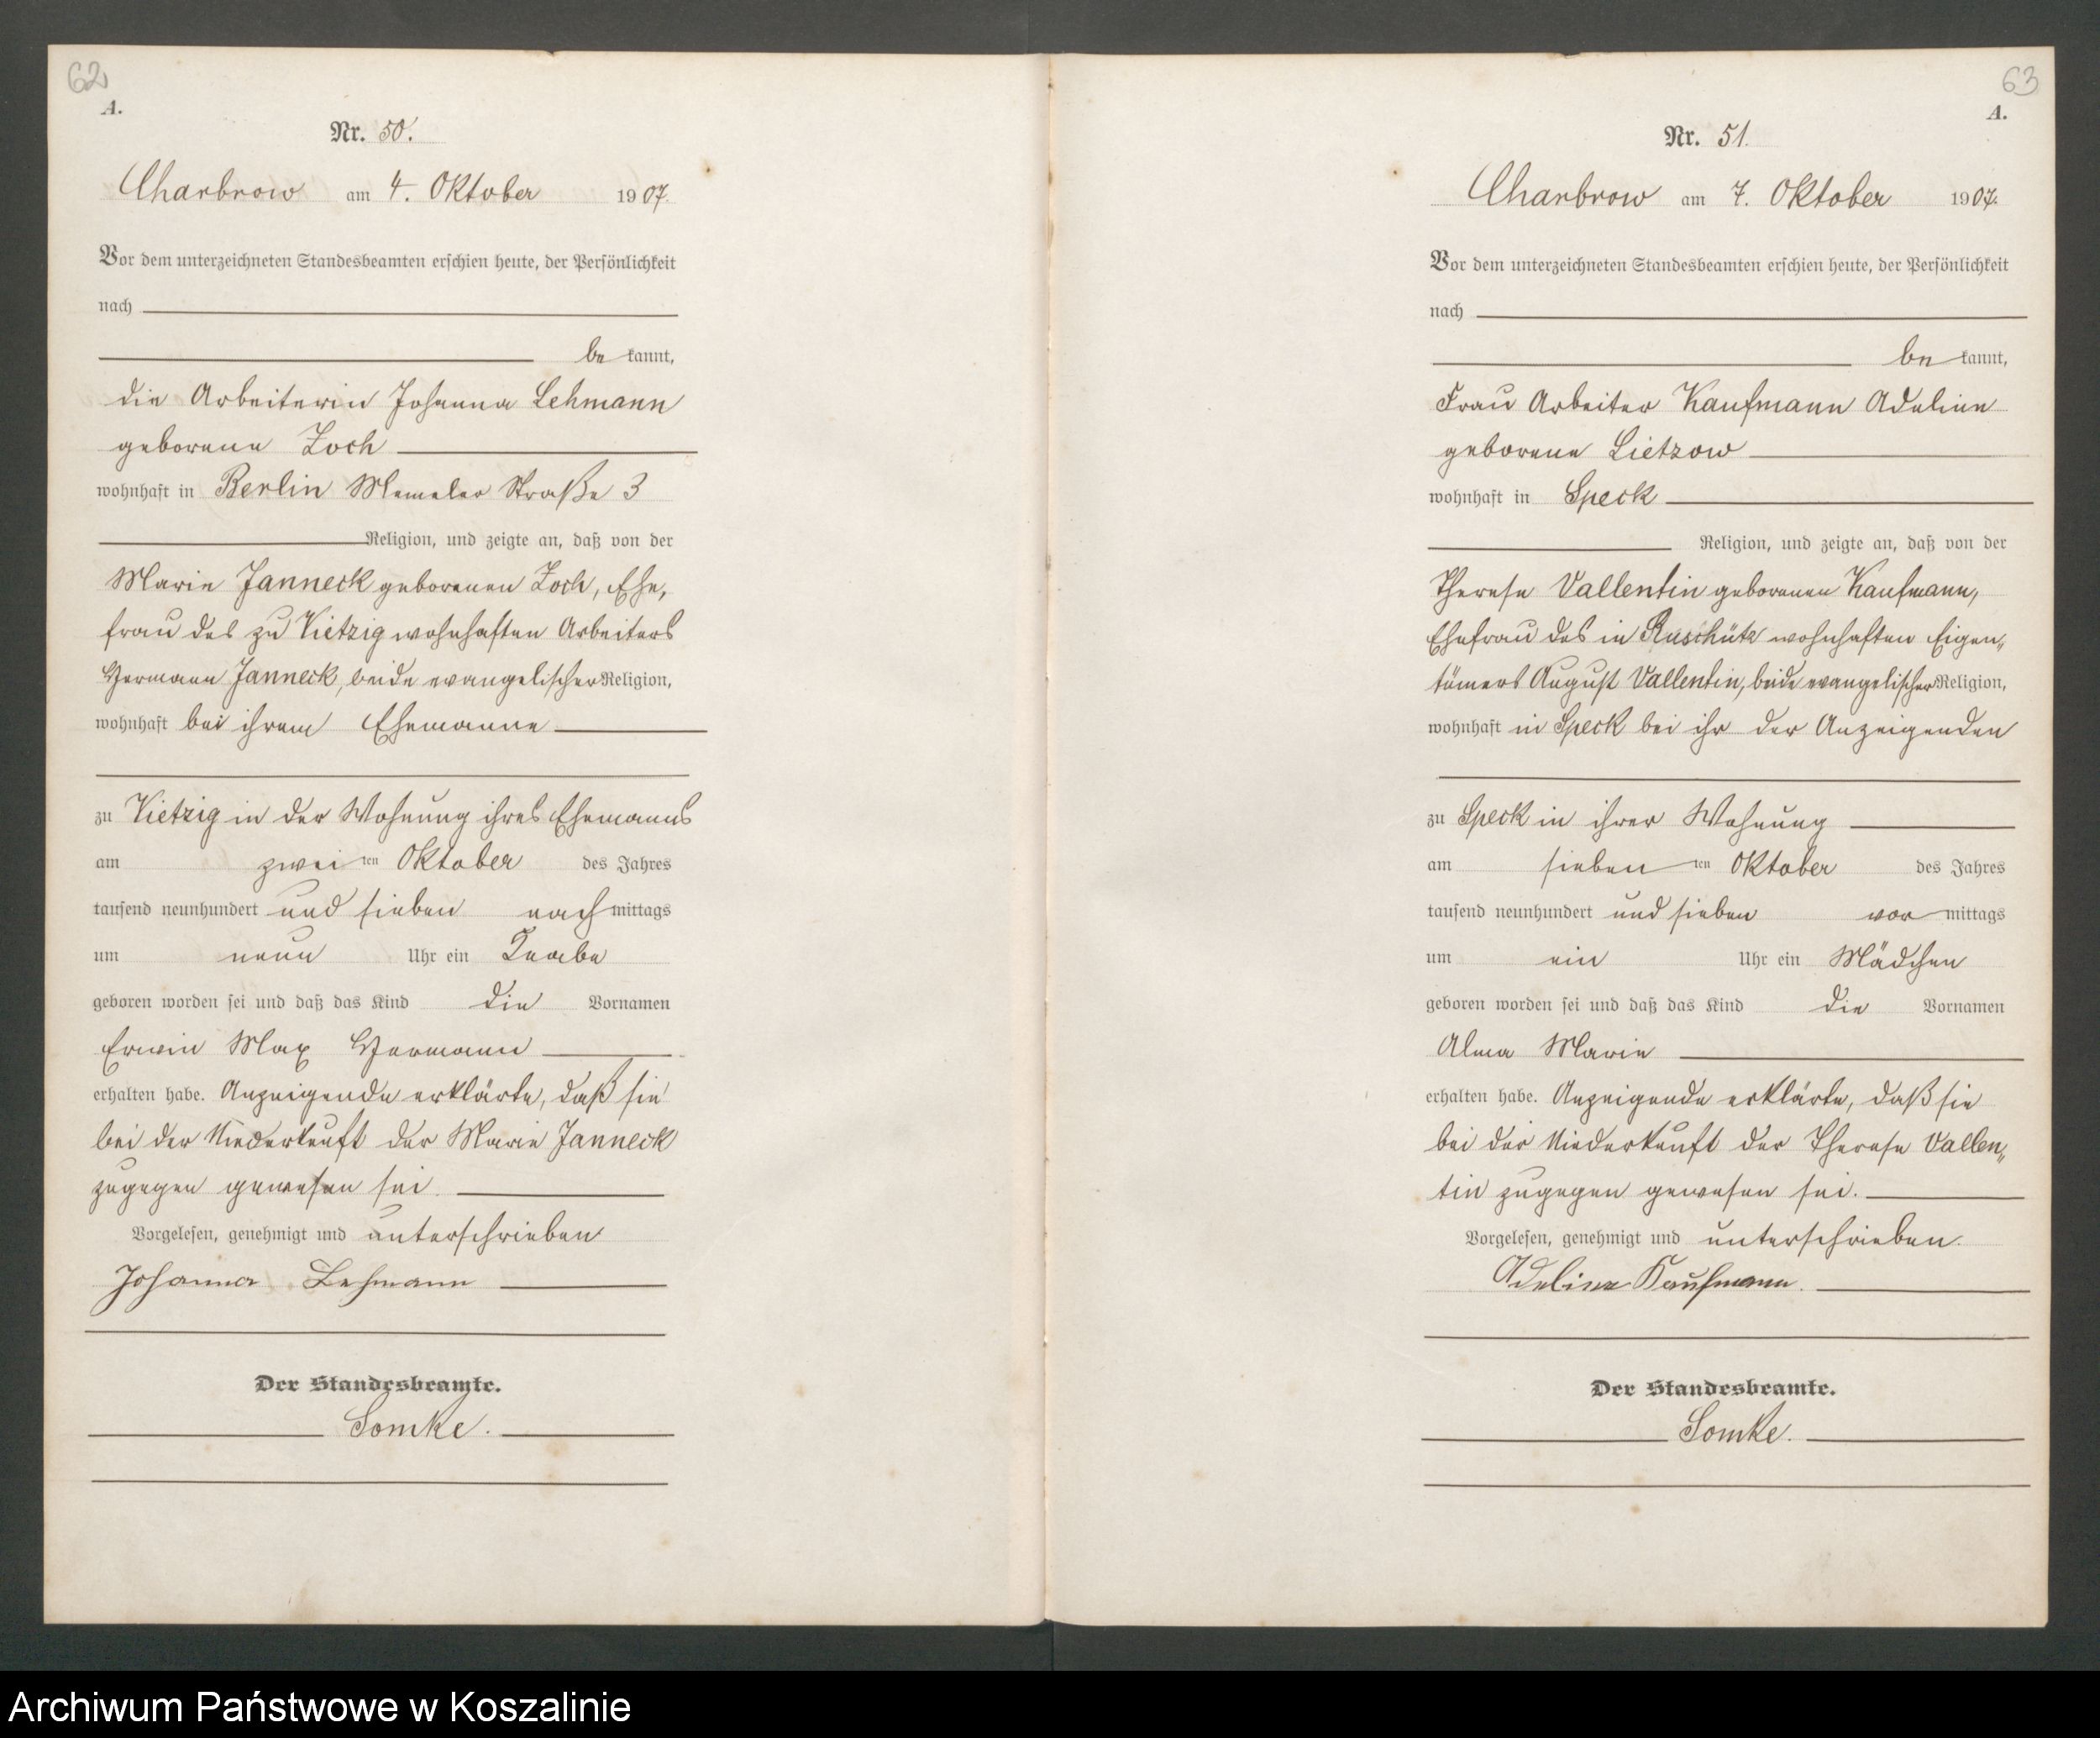 62
A.
Nr. 50.
Charbrow am 4. Oktober 1907.
Vor dem unterzeichneten Standesbeamten erschien heute, der Persönlichkeit
nach
bekannt,
die Arbeiterin Johanna Lehmann
geborene Zoch
wohnhaft in Berlin Memeler Straße 3
Religion, und zeigte an, daß von der
Marie Janneck geborenen Zoch, Ehe,
frau des zu Vietzig wohnhaften Arbeiters
Hermann Janneck, beide evangelischer Religion,
wohnhaft bei ihrem Ehemanne
zu Vietzig in der Wohnung ihres Ehemanns
am zweiten Oktober des Jahres
tausend neunhundert und sieben nachmittags
um neun Uhr ein Knabe
geboren worden sei und daß das Kind die Vornamen
Erwin Max Hermann
erhalten habe. Anzeigende erklärte, daß sie
bei der Niederkunft der Marie Janneck
zugegen gewesen sei.
Vorgelesen, genehmigt und unterschrieben
Johanna Lehmann
Der Standesbeamte.
Somke.
63
A.
Nr. 51.
Charbrow am 7. Oktober 1907.
Vor dem unterzeichneten Standesbeamten erschien heute, der Persönlichkeit
nach
bekannt,
Frau Arbeiter Kaufmann Adeline
geborene Lietzow
wohnhaft in Speck
Religion, und zeigte an, daß von der
Therese Vallentin geborenen Kaufmann,
Ehefrau des in Ruschütz wohnhaften Eigen„
tümers August Vallentin, beide evangelischer Religion,
wohnhaft in Speck bei ihr der Anzeigenden
zu Speck in ihrer Wohnung
am siebenten Oktober des Jahres
tausend neunhundert und sieben vormittags
um ein Uhr ein Mädchen
geboren worden sei und daß das Kind die Vornamen
Alma Marie
erhalten habe. Anzeigende erklärte, daß sie
bei der Niederkunft der Therese Vallen„
tin zugegen gewesen sei.
Vorgelesen, genehmigt und unterschrieben.
Adeline Kaufmann.
Der Standesbeamte.
Somke.
Archiwum Państwowe w Koszalinie